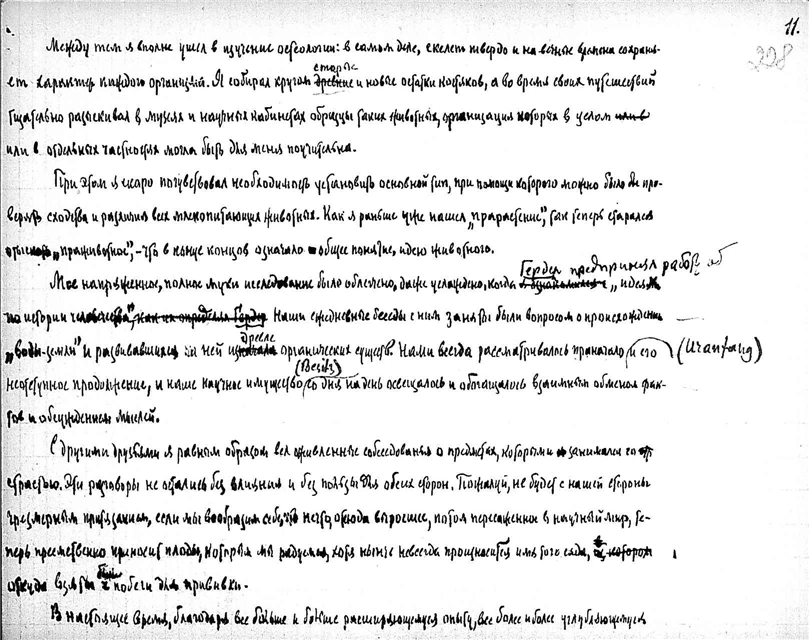 11.
228
Между тем я вполне ушел в изучение остеологии: в самом деле, скелет твердо и на вечные времена сохраня-
ет характер каждого организма. Я собирал кругом древние старые и новые остатки костяков, а во время своих путешествий
тщательно разыскивал в музеях и научных кабинетах образцы таких животных, организация которых в целом или в
или в отдельных частностях могла быть для меня поучительна.
При этом я скоро почувствовал необходимость установить основной тип, при помощи которого можно было бы про-
верить сходства и различия всех млекопитающих животных. Как я раньше уже нашел „прарастение“, так теперь старался
отыскать „праживотное“, – что в конце концов означало общее понятие, идею животного.
Мое напряженное, полное муки исследование было облегчено, даже услаждено, когда Гердер предпринял работу об „идеях
по истории человечества“, как их определил Гердер. Наши ежедневные беседы с ним заняты были вопросом о происхождении
„воды-земли“ и развивавшихся на ней издревле органических существ. Нами всегда рассматривалось праначало и его (Uranfang)
неотступное продолжение, и наше научное имущество (Besitz) со дня на день освещалось и обогащалось взаимным обменом фак-
тов и обсуждением мыслей.
С другими друзьями я равным образом вел оживленные собеседования о предметах, которыми занимался со
страстью. Эти разговоры не остались без влияния и без пользы для обеих сторон. Пожалуй, не будет с нашей стороны
чрезмерным притязанием, если мы вообразим себе, что нечто, отсюда выросшее, потом пересаженное в научный мир, те-
перь преемственно приносит плоды, которым мы радуемся, хотя нынче не всегда произносится имя того сада, из которого
откуда взяты были побеги для прививки.
В настоящее время, благодаря все больше и больше расширяющемуся опыту, все более и более углубляющемуся